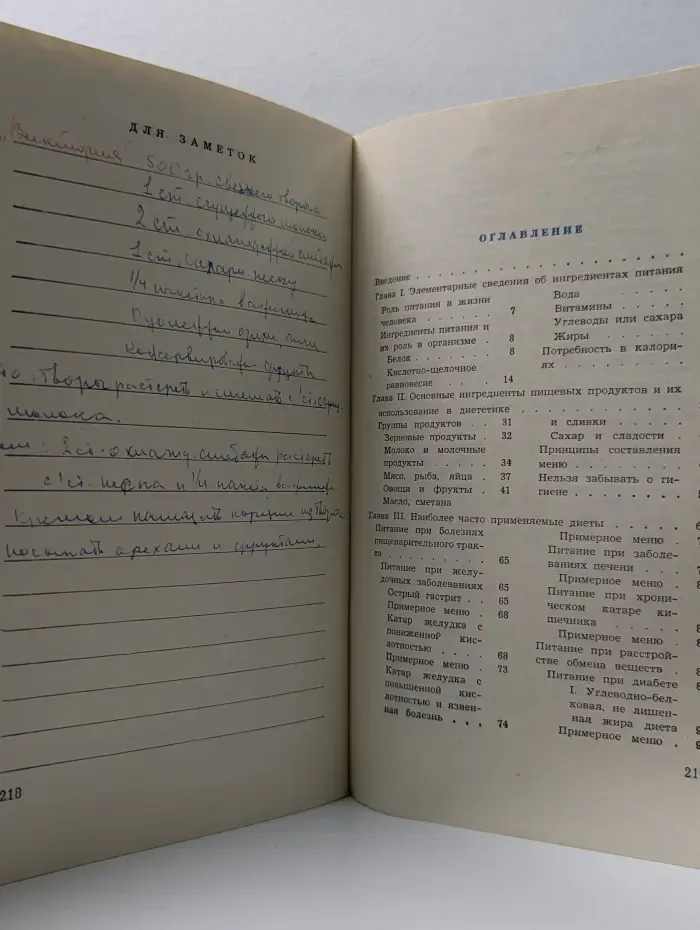 ДЛЯ ЗАМЕТОК
„Виктория"
500 гр. свежего творога
1 ст. сгущеного молока
2 ст. охлажденной сметаны
1 ст. сахарн. песку
1/4 пакетика ванилина
орехи, или
фрукты
молока.
2 ст. охлажд. сметаны растереть
с 1 ст. песка и 1/4 ванилина.
Кремом
посыпать орехами и фруктами.
218
ОГЛАВЛЕНИЕ
Введение . . . . . . . . . . . . . . . .
Глава I. Элементарные сведения об ингредиентах питания
Роль питания в жизни
человека . . . . . . 7
Ингредиенты питания и
их роль в организме . 8
Белок . . . . . . 8
Кислотно-щелочное
равновесие . . . . . 14
Вода . . . . . . .
Витамины . . . . .
Углеводы или сахара
Жиры . . . . . . .
Потребность в калори-
ях . . . . . . . .
Глава II. Основные ингредиенты пищевых продуктов и их
использование в диететике . . . . . . . . . . .
Группы продуктов . 31
Зерновые продукты . 32
Молоко и молочные
продукты . . . . . 34
Мясо, рыба, яйца . 37
Овощи и фрукты . 41
Масло, сметана
и сливки . . . . .
Сахар и сладости .
Принципы составления
меню . . . . . . .
Нельзя забывать о ги-
гиене . . . . . . .
Глава III. Наиболее часто применяемые диеты . . . . .
Питание при болезнях
пищеварительного трак-
та . . . . . . . . . 65
Питание при желу-
дочных заболеваниях 65
Острый гастрит . . 65
Примерное меню . 68
Катар желудка с
пониженной кис-
лотностью . . . . 68
Примерное меню . 73
Катар желудка с
повышенной кис-
лотностью и язвен-
ная болезнь . . . 74
Примерное меню .
Питание при заболе-
ваниях печени . . .
Примерное меню .
Питание при хрони-
ческом катаре ки-
шечника . . . . .
Примерное меню .
Питание при расстрой-
стве обмена веществ .
Питание при диабете
I. Углеводно-бел-
ковая, не лишен-
ная жира диета
Примерное меню .